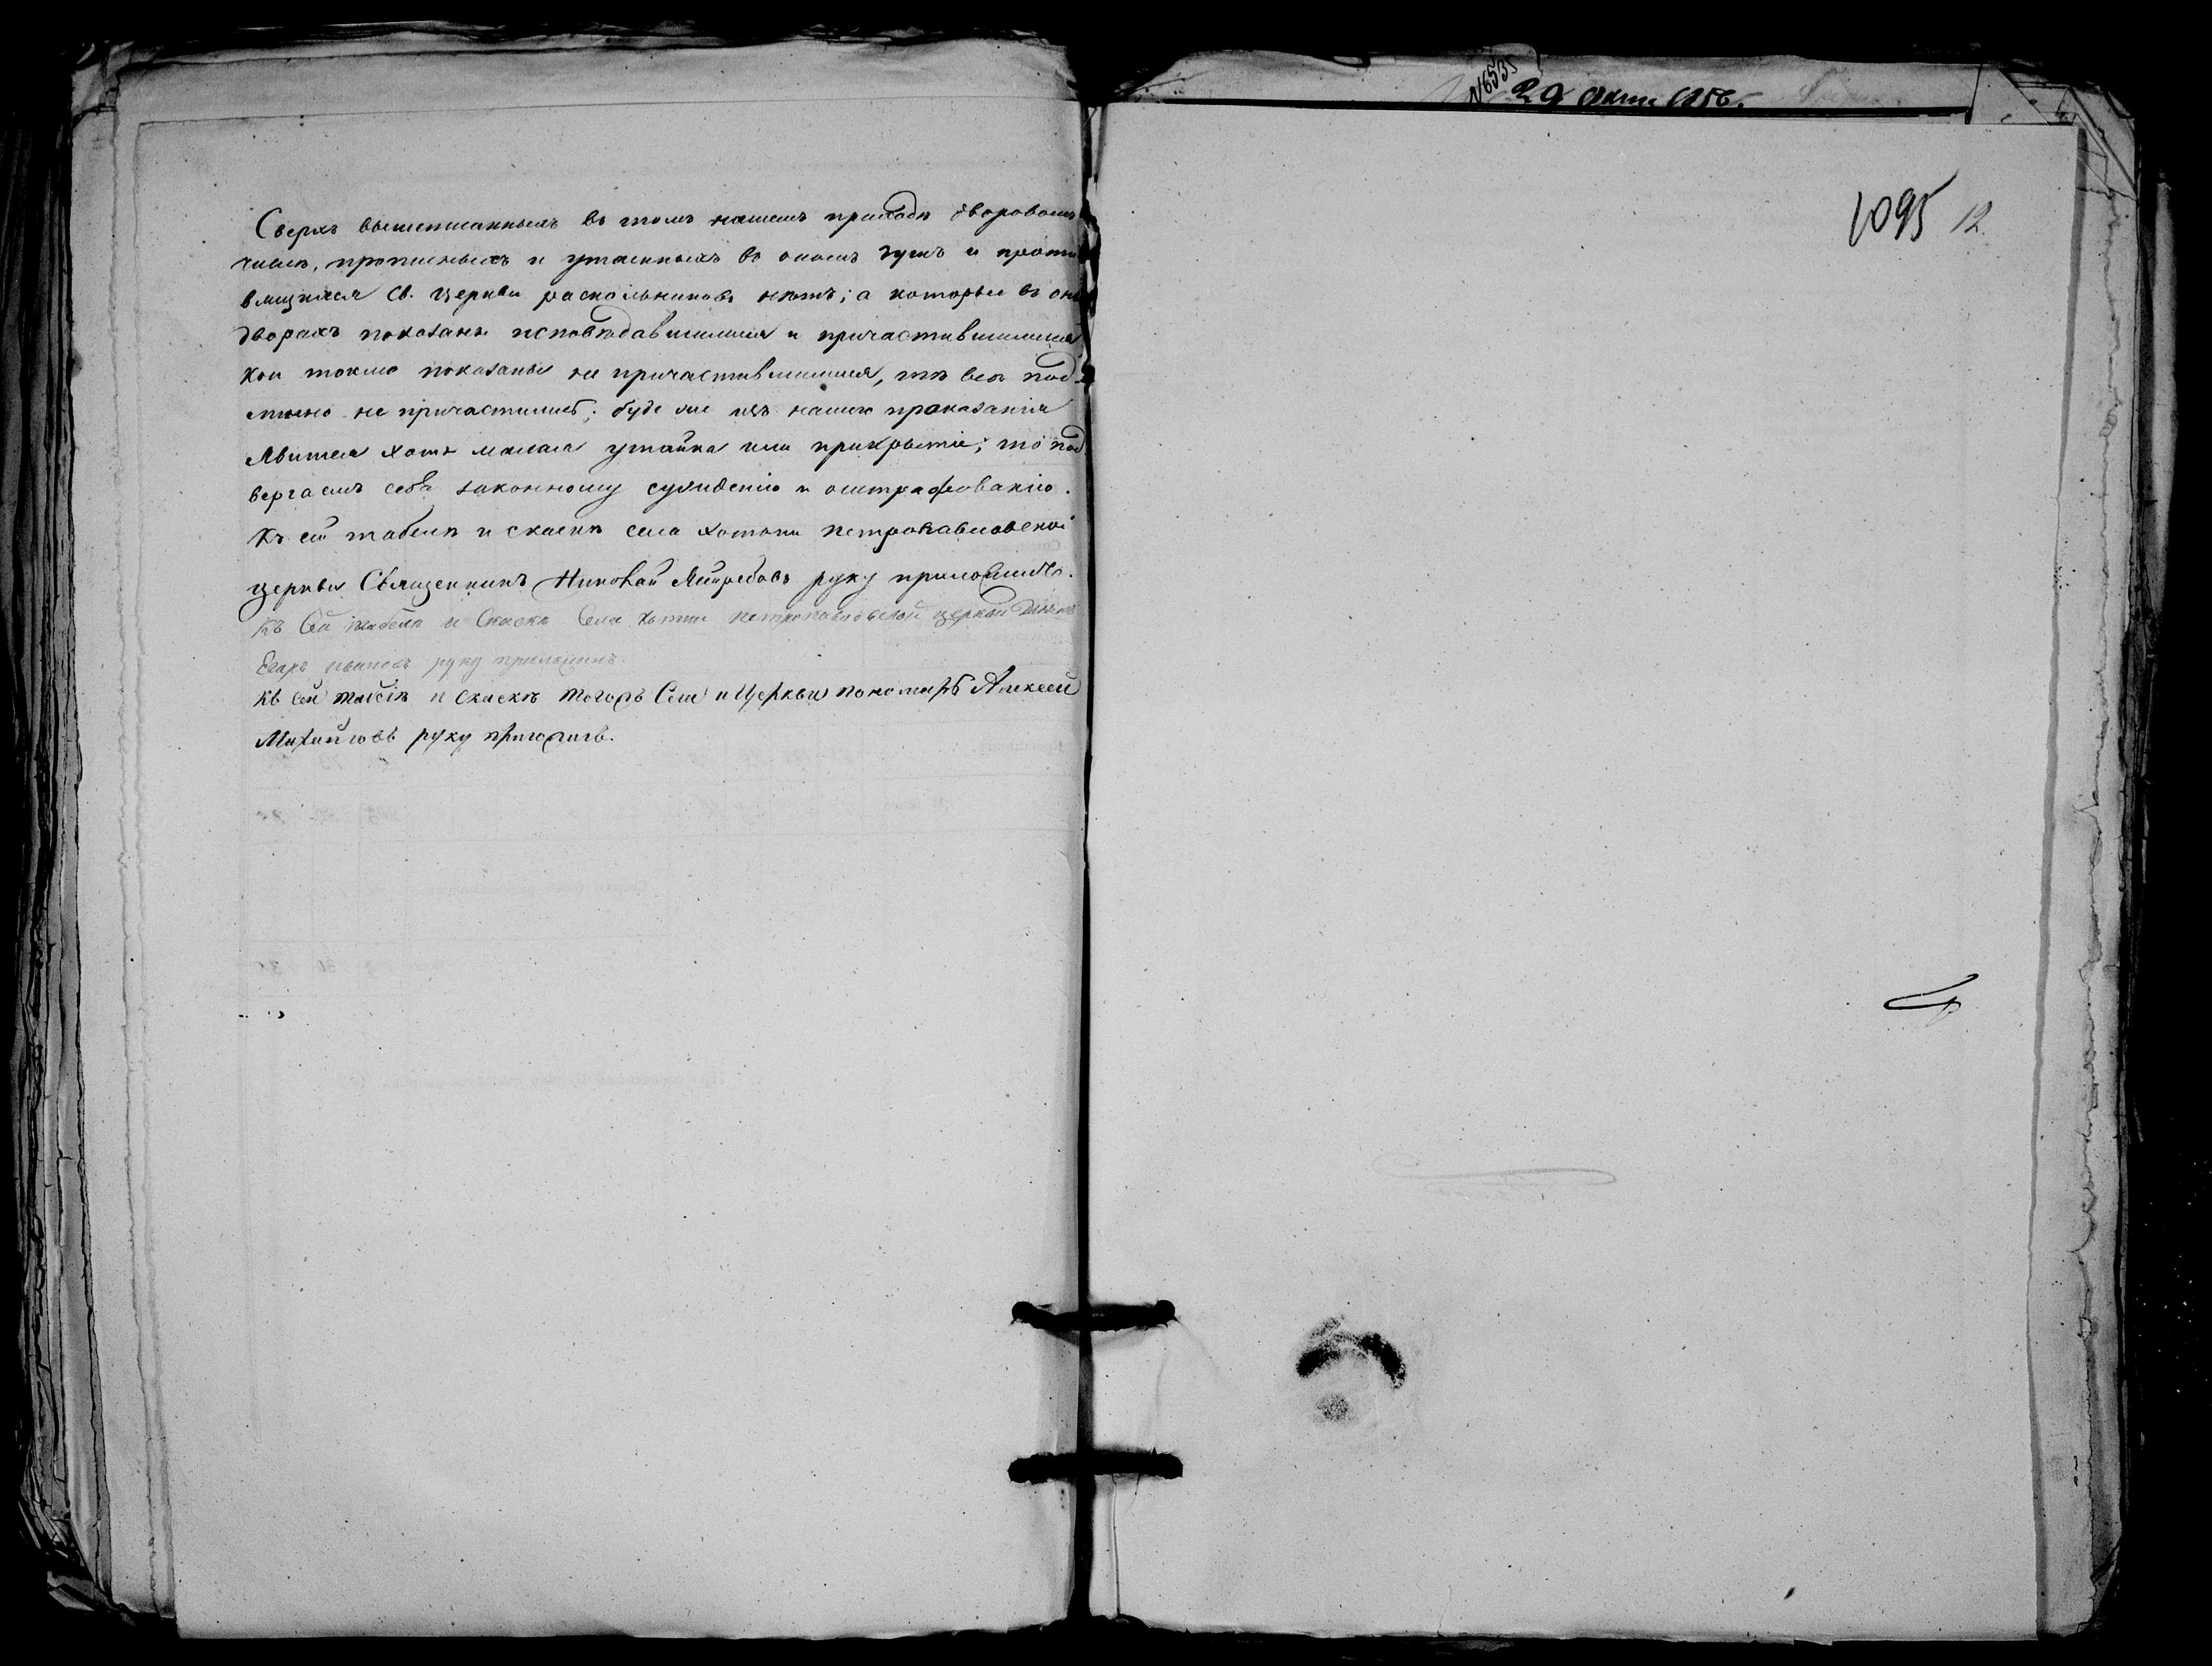 Сверхъ вышеписанныхъ въ томъ нашемъ приходѣ дворовомъ
числѣ, прописныхъ и утаенныхъ во ономъ душъ и проти
вящихся Св. Церкви раскольниковъ нѣтъ; а которые въ он
дворахъ показаны исповѣдавшимися и причастившимися
кои токмо показаны не причастившимися, тѣ всѣ под
линно не причастились; буде же изъ нашего показанія
явится хотя малая утайка или прикрытіе; то под
вергаемъ себя законному сужденію и оштрафованію.
Къ сей табели и скаскѣ села Хотыни Петропавловской
церкви Священникъ Николай руку приложилъ.
Къ сей табели и Скаскѣ Села Хотыни Петропавловской церкви Дьячекъ
Егоръ Ивановъ руку приложилъ.
Къ сей табели и Скаскѣ тогожъ Села и Церкви пономарь Алексей
Михайловъ руку приложилъ.
№6535
29 Окт 1856.
1095 12